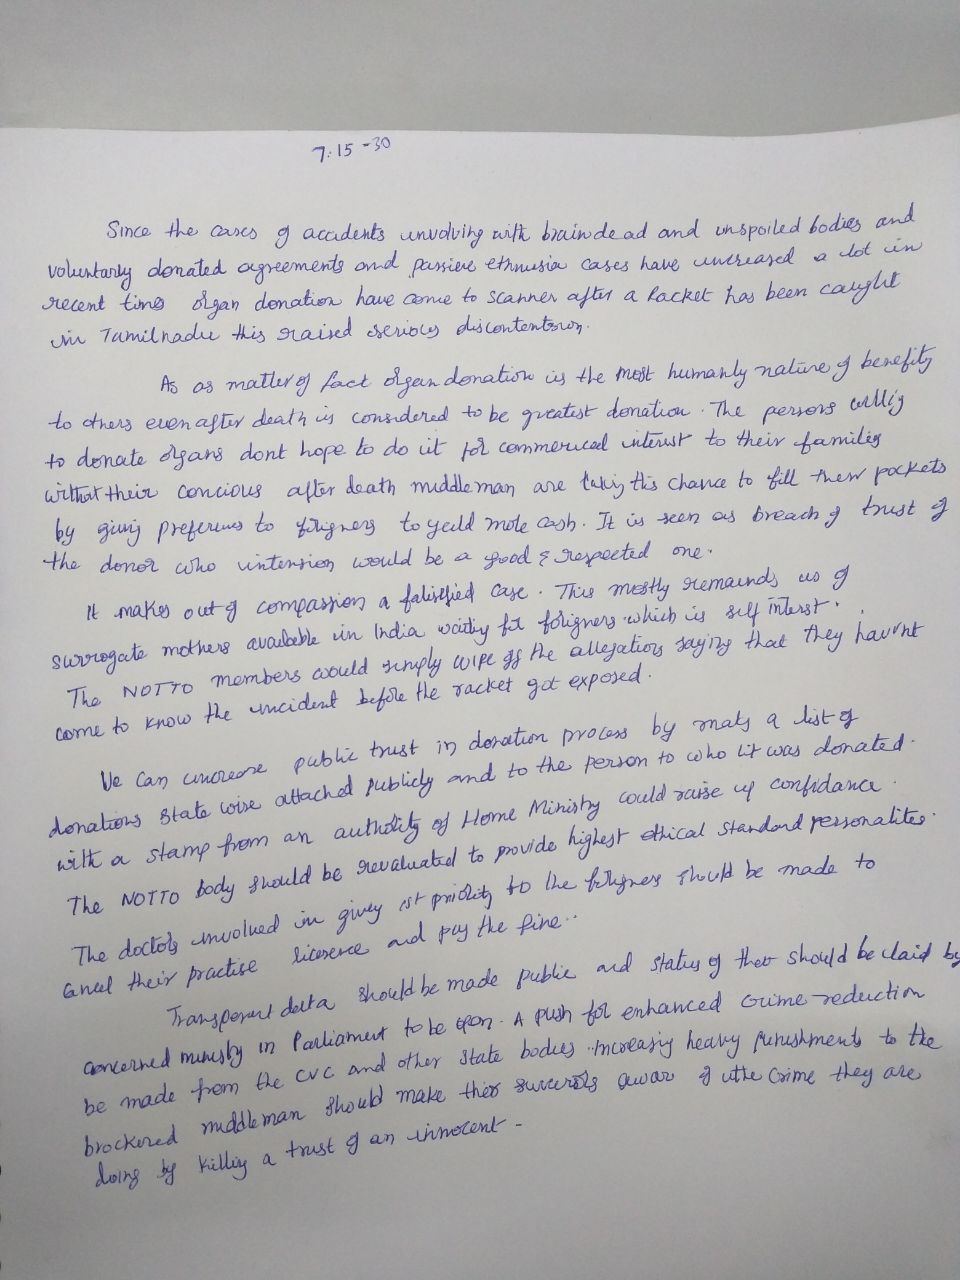 7:15 -30
Since the cases of accidents involving with braindead and unspoiled bodies and
voluntarly donated agreements and passive ethnusia cases have increased a lot in
recent times organ donation have come to scanner after a Racket has been caught
in Tamilnadu this raised serious discontentson.
As as matter of fact organ donation is the most humanly nature of benefity
to others even after death is considered to be greatest donation. The persons willig
to donate organs dont hope to do it for commerical interst to their families
without their concious after death middleman are takig this chance to fill their pockets
by givig preferenes to forigners to yeild more cash. It is seen as breach of trust of
the donor who intension would be a good & respected one.
It makes out of compassion a falisified case. This mostly remainds us of
surrogate mothers available in India waitig for forigners which is self interst.
The NOTTO members would simply wipe off the allegations saying that they havn't
come to know the incident before the racket got exposed.
We can increase public trust in donation process by makg a list of
donations State wise attached publicly and to the person to who it was donated.
with a stamp from an authority of Home Ministry could raise up confidance.
The NOTTO body should be revaluated to provide highest ethical standard personalites.
The doctors involved in givig 1st priority to the forigners should be made to
cancel their practise licesence and pay the fine..
Transperent data should be made public and status of their should be laid by
concerned ministry in Parliament to be open. A push for enhanced crime reduction
be made from the CVC and other State bodies. Increasig heavy punishments to the
brockered middleman should make their awar of the crime they are
doing by killig a trust of an innocent -